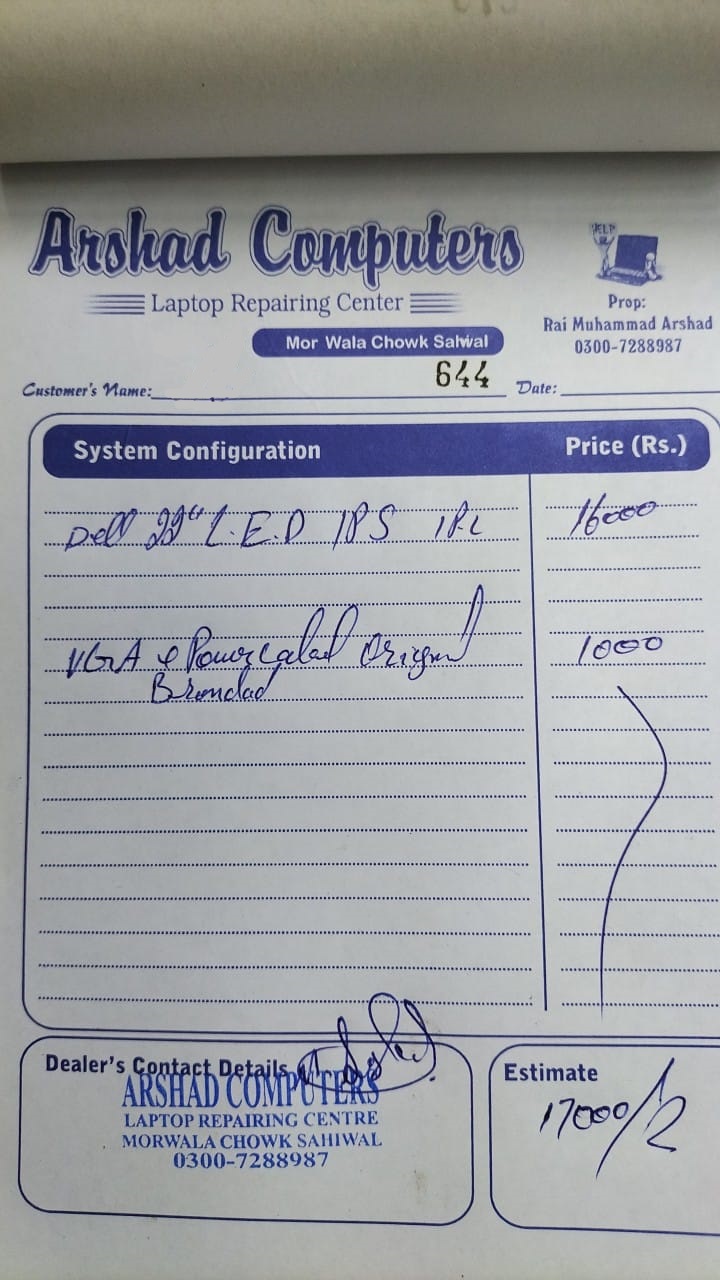 Arshad Computers
Laptop Repairing Center
Mor Wala Chowk Sahiwal
HELP
Prop:
Rai Muhammad Arshad
0300-7288987
644
Customer's Name:
Date:
System Configuration
Price (Rs.)
Dell 22" L.E.D IPS 1Pc 16000
VGA & Power cabal Orignal 1000
Brandad
Dealer's Contact Details
ARSHAD COMPUTERS
LAPTOP REPAIRING CENTRE
MORWALA CHOWK SAHIWAL
0300-7288987
Estimate
17000/